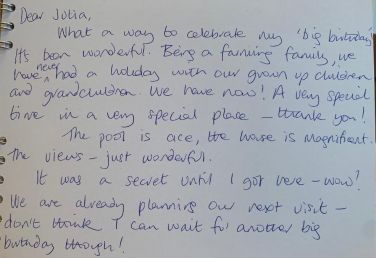 Dear Julia,
What a way to celebrate my 'big birthday'
It's been wonderful. Being a farming family, we
have never had a holiday with our grown up children
and grandchildren. We have now! A very special
time in a very special place - thank you!
The pool is ace, the house is magnificent.
The views - just wonderful.
It was a secret until I got here - wow!
We are already planning our next visit -
don't think I can wait for another big
birthday though!